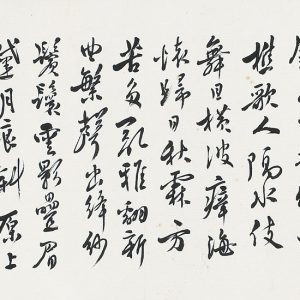 樵歌人隔水伎
舞且橫波瘴海
懷歸日秋霖方
苦多雅翻新
曲繁聲出絳紗
鬢鬟雲影疊眉
黛月痕斜原上